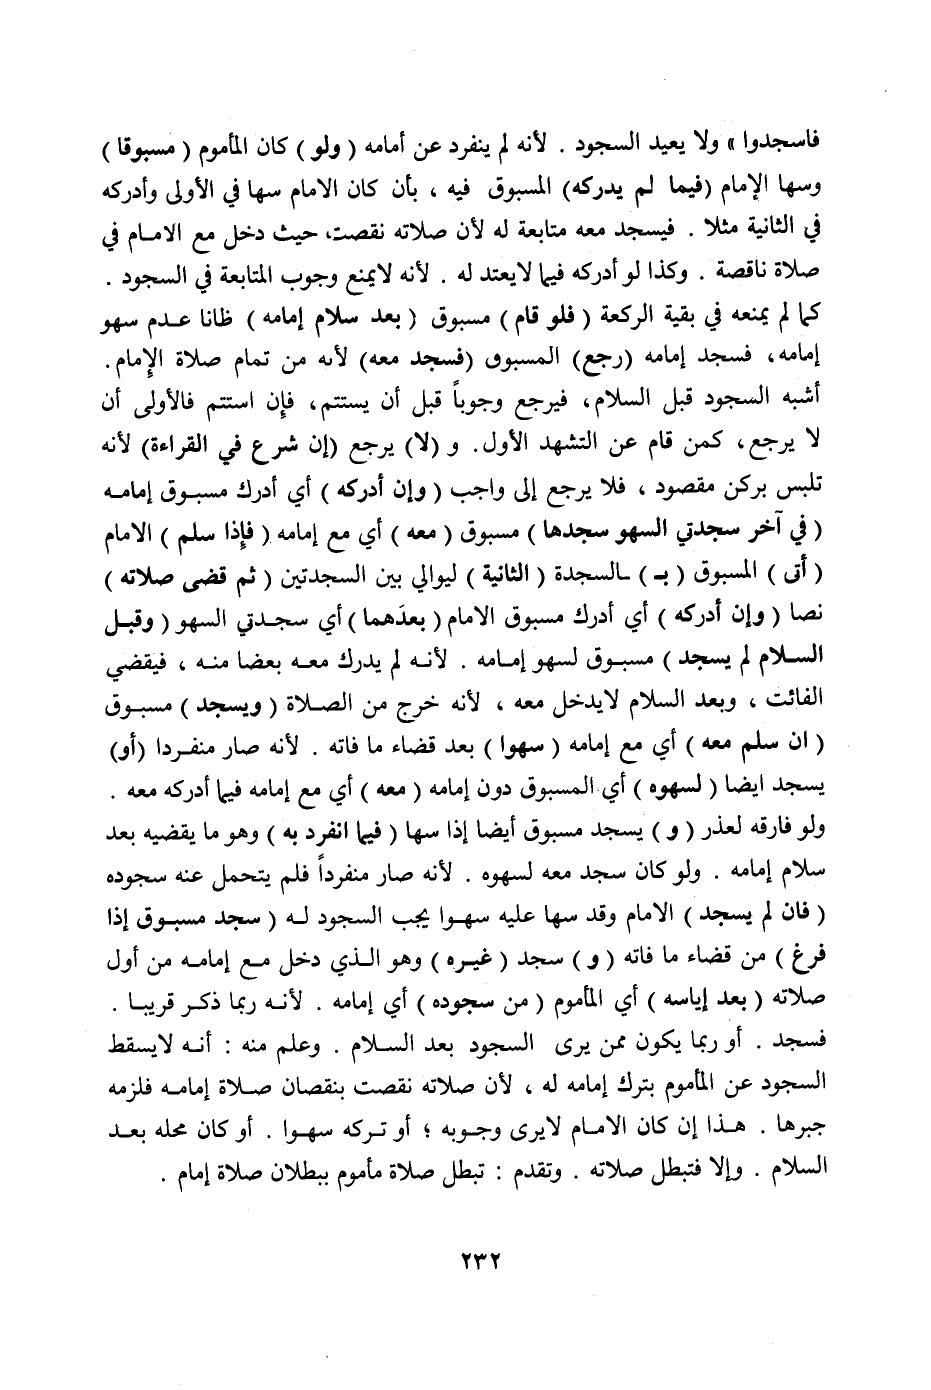 فاسجدوا » ولا يعيد السجود . لأنه لم ينفرد عن أمامه ( ولو ) كان المأموم ( مسبوقا )
وسها الإمام (فيما لم يدركه) المسبوق فيه ، بأن كان الامام سها في الأولى وأدركه
في الثانية مثلا . فيسجد معه متابعة له لأن صلاته نقصت، حيث دخل مع الامام في
صلاة ناقصة . وكذا لو أدركه فيما لايعتد له . لأنه لايمنع وجوب المتابعة في السجود .
كما لم يمنعه في بقية الركعة ( فلو قام ) مسبوق ( بعد سلام إمامه ) ظانا عدم سهو
إمامه، فسجد إمامه (رجع) المسبوق (فسجد معه) لأنه من تمام صلاة الإمام.
أشبه السجود قبل السلام، فيرجع وجوباً قبل أن يستتم، فإن استتم فالأولى أن
لا يرجع، كمن قام عن التشهد الأول. و (لا) يرجع (إن شرع في القراءة) لأنه
تلبس بركن مقصود ، فلا يرجع إلى واجب ( وإن أدركه ) أي أدرك مسبوق إمامه
( في آخر سجدتي السهو سجدها ) مسبوق ( معه ) أي مع إمامه ( فإذا سلم ) الامام
( أتى ) المسبوق ( بـ ) ـالسجدة ( الثانية ) ليوالي بين السجدتين ( ثم قضى صلاته )
نصا ( وإن أدركه ) أي أدرك مسبوق الامام ( بعدَهما ) أي سجدتي السهو ( وقبل
السلام لم يسجد ) مسبوق لسهو إمامه . لأنه لم يدرك معه بعضا منه ، فيقضي
الفائت ، وبعد السلام لايدخل معه ، لأنه خرج من الصلاة ( ويسجد ) مسبوق
( ان سلم معه ) أي مع إمامه ( سهوا ) بعد قضاء ما فاته . لأنه صار منفردا (أو)
يسجد ايضا ( لسهوه ) أي المسبوق دون إمامه ( معه ) أي مع إمامه فيما أدركه معه .
ولو فارقه لعذر ( و ) يسجد مسبوق أيضا إذا سها ( فيما انفرد به ) وهو ما يقضيه بعد
سلام إمامه . ولو كان سجد معه لسهوه . لأنه صار منفرداً فلم يتحمل عنه سجوده
( فان لم يسجد ) الامام وقد سها عليه سهوا يجب السجود له ( سجد مسبوق إذا
فرغ ) من قضاء ما فاته ( و ) سجد ( غيره ) وهو الذي دخل مع إمامه من أول
صلاته ( بعد إياسه ) أي المأموم ( من سجوده ) أي إمامه . لأنه ربما ذكر قريبا .
فسجد . أو ربما يكون ممن يرى السجود بعد السلام . وعلم منه : أنه لايسقط
السجود عن المأموم بترك إمامه له ، لأن صلاته نقصت بنقصان صلاة إمامه فلزمه
جبرها . هذا إن كان الامام لايرى وجوبه ؛ أو تركه سهوا . أو كان محله بعد
السلام . وإلا فتبطل صلاته . وتقدم : تبطل صلاة مأموم ببطلان صلاة إمام .
٢٣٢